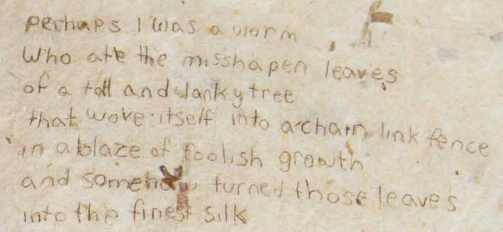 perhaps I was a worm
who ate the misshapen leaves
of a tall and lanky tree
that wove itself into a chain link fence
in a blaze of foolish growth
and somehow turned those leaves
into the finest silk